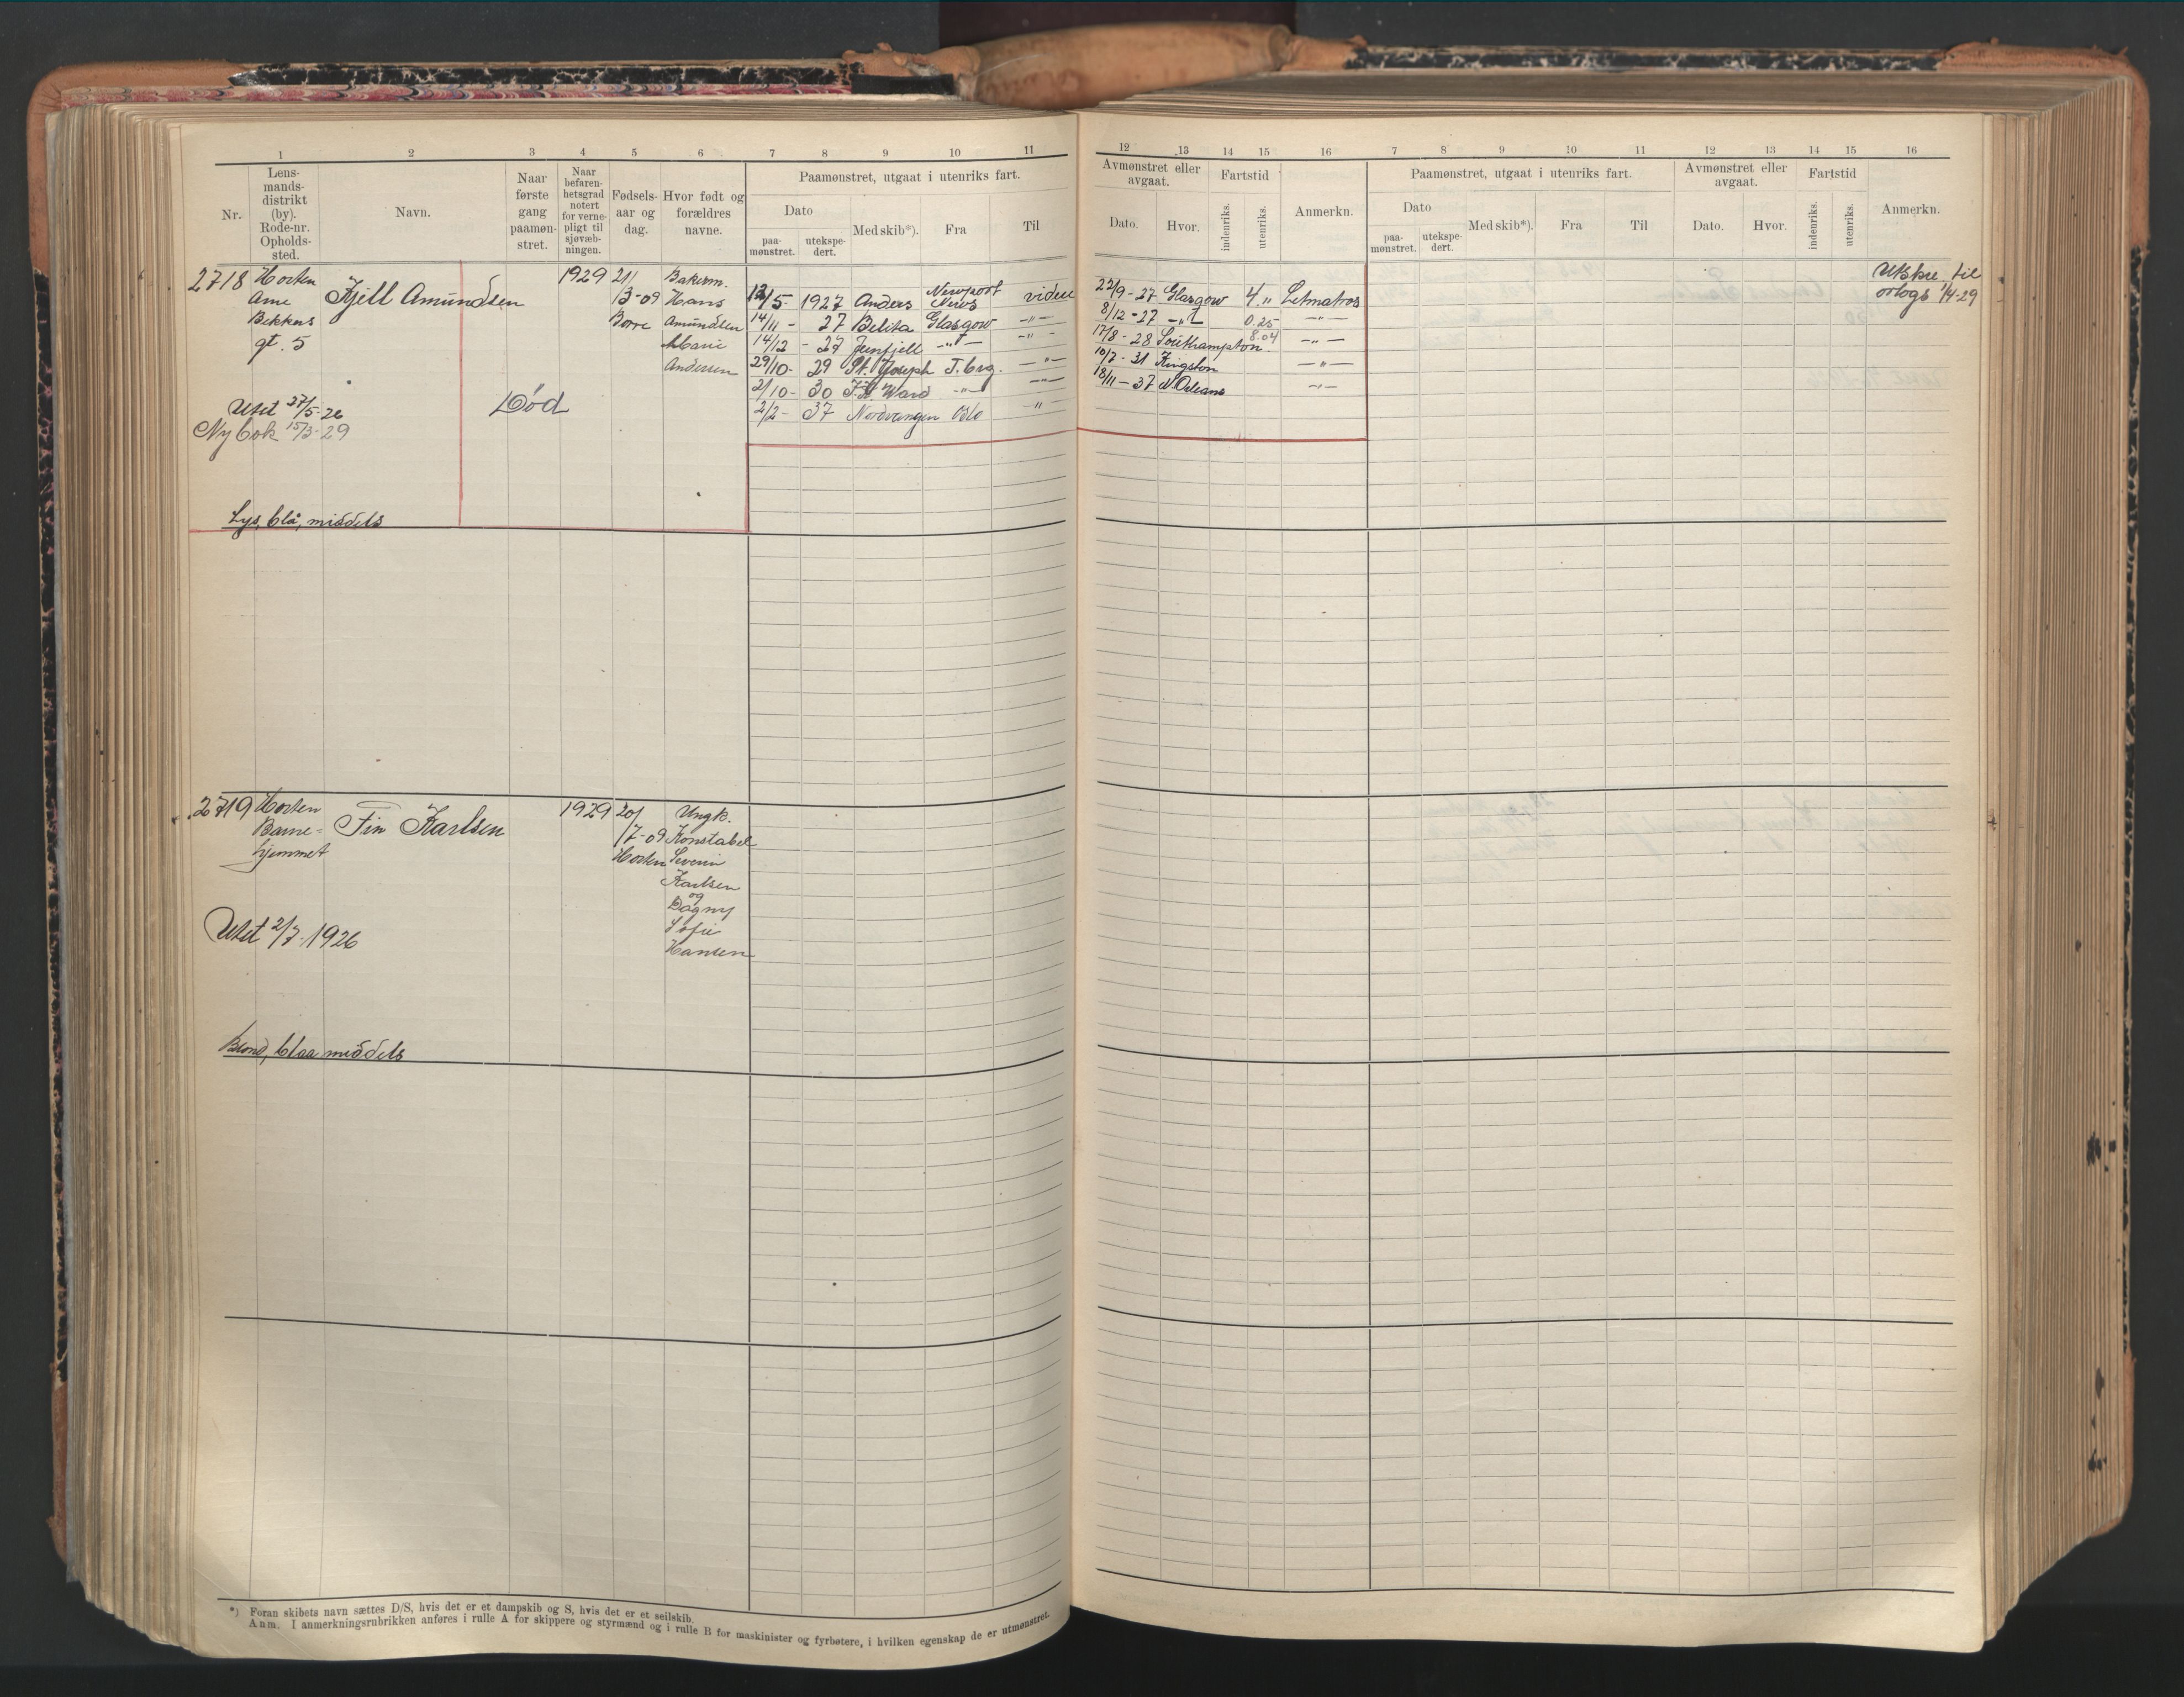 1 2 3 4 5 6 7 8 9 10 11
Nr.
Lens-
mands-
distrikt
(by).
Rode-nr.
Opholds-
sted.
Navn.
Naar
første
gang
paamøn-
stret.
Naar
befaren-
hetsgrad
notert
for verne-
pligt til
sjøvæb-
ningen.
Fødsels-
aar og
dag.
Hvor født og
forældres
navne.
Paamønstret, utgaat i utenriks fart.
Dato
paa-
mønstret.
utekspe-
dert.
Med skib*).
Fra
Til
2718
Horten
Arne
Bekkens
gt. 5
Kjell Amundsen
1929
21/
3-09
Borre
Bakerm.
Hans
Amundsen
Marie
Andersen
Utst 27/5-26
Ny bok 15/3-29
Død
Lys, blå, middels
12/5- 1927 Anders Newport News videre
14/11 - 27 Belita Glasgow -"-
14/12 - 27 -"- -"-
29/10- 29 St. Joseph T.brg. -"-
2/10- 30 Ward -"- -"-
2/2- 37 Nordvangen Oslo "
2719
Horten
Barne-
hjemmet
Fin Karlsen
1929
20/
7-09
Horten
Ungk.
Konstabel
Severin
Karlsen
og
Dagny
Sofie
Hansen
Utst 2/7-1926
Blond, blaa middels
*) Foran skibets navn sættes D/S, hvis det er et dampskib og S, hvis det er et seilskib.
Anm. I anmerkningsrubrikken anføres i rulle A for skippere og styrmænd og i rulle B for maskinister og fyrbøtere, i hvilken egenskap de er utmønstret.
12 13 14 15 16 7 8 9 10 11 12 13 14 15 16
Avmønstret eller
avgaat.
Dato.
Hvor.
Fartstid
indenriks.
utenriks.
Anmerkn.
Paamønstret, utgaat i utenriks fart.
Dato
paa-
mønstret.
utekspe-
dert.
Med skib*).
Fra
Til
Avmønstret eller
avgaat.
Dato.
Hvor.
Fartstid
indenriks.
utenriks.
Anmerkn.
22/9-27 Glasgow 4 " Letmatros
8/12-27 -"- 0.25 -"-
17/8-28 Southampton. 8.04 -"-
10/7-31 Kingston -"-
18/11-37 N Orleans -"-
Utskr. til
orlogs 1/4-29